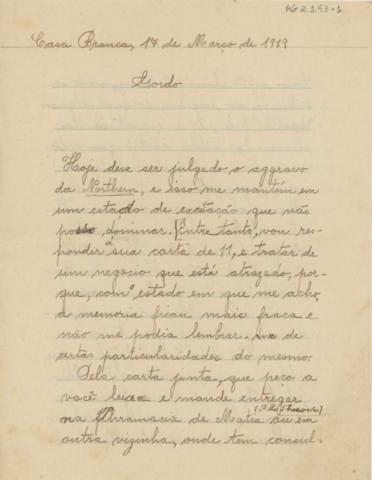 AG 2.3.53-1
Casa Branca, 17 de Março de 1919
Gordo
Hoje deve ser julgado o aggravo
da Northern, e isso me mantém em
um estado de excitação que não
posso dominar. Entre tanto, vou res-
ponder sua carta de 11, e tratar de
um negocio que está atrazado, por-
que, com o estado em que me acho,
a memoria ficou mais fraca e
não me podia lembrar de
certas particularidades do mesmo.
Pela carta junta, que peço a
você leia e mande entregar
na Phramacia de Matia ou em
outra vizinha, onde tem consul-